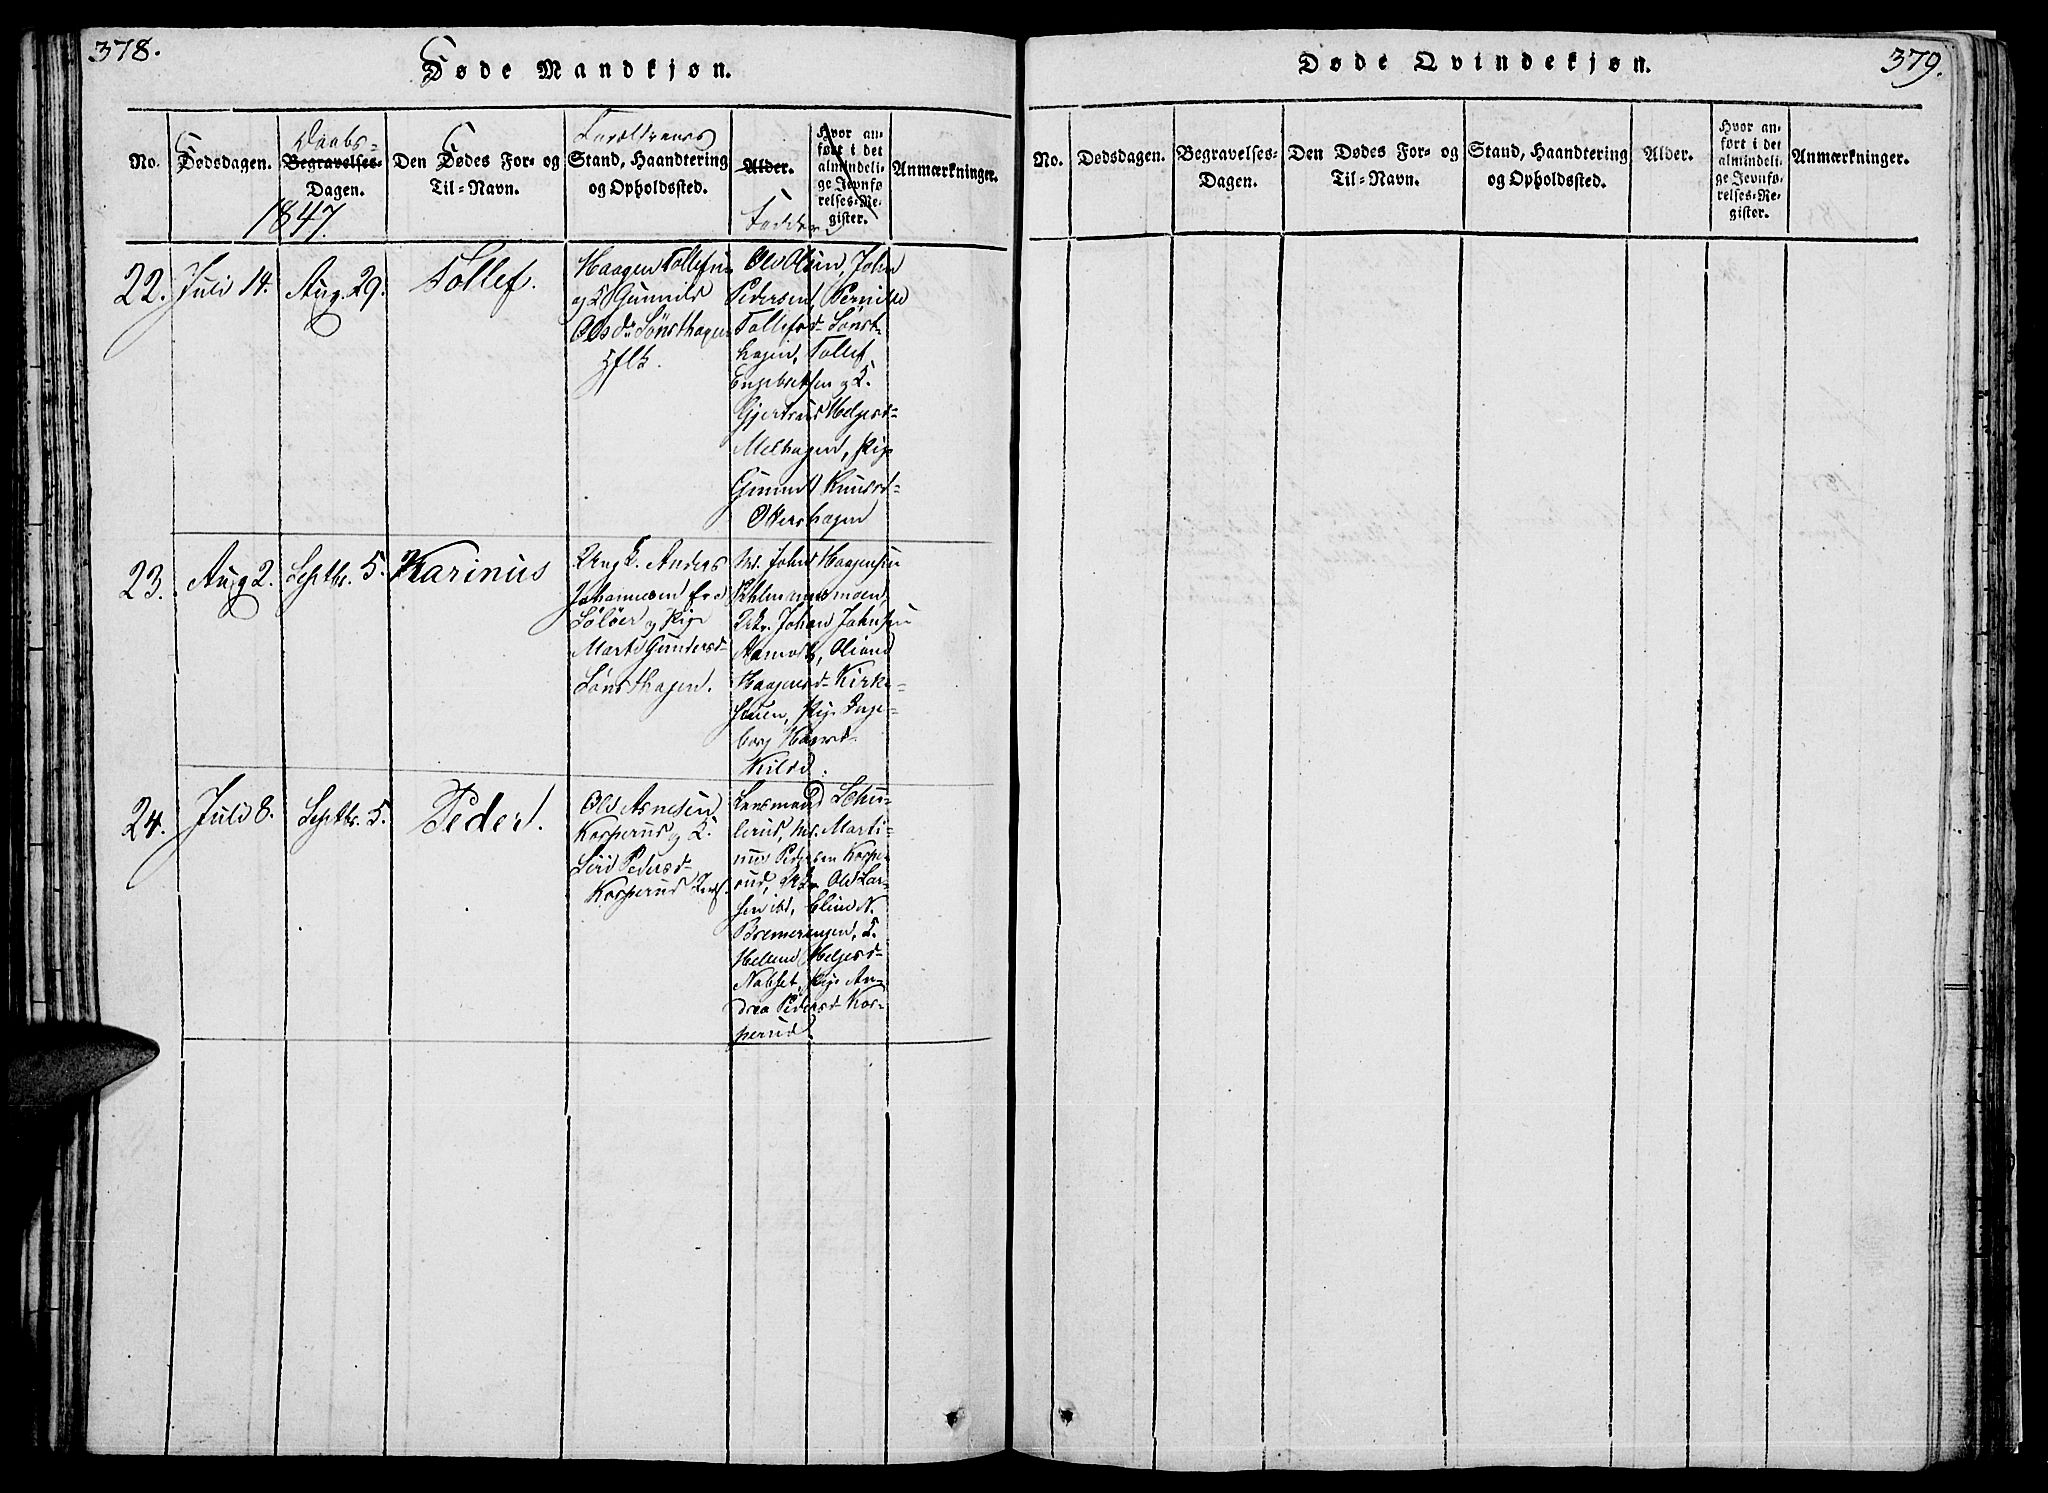 378.
Føde Mandkjøn.
No.
Fødsdagen.
Daabs-
Begravelses-
Dagen.
Den Fødes For- og
Til-Navn.
Forældrenes
Stand, Haandtering
og Opholdssted.
Alder.
Faddere
Hvor an-
ført i det
almindeli-
ge Jevnfø-
relses-Re-
gister.
Anmærkninger.
1847.
22.
Juli 14.
Aug. 29.
Tollef.
Haagen Tollefsen
og K. Gunnild
Olsdr Sønsthagen
Ole Olsen, John
Pedersen, Pernille
Tollefsd- Sønst-
hagen, Tollef
Engebretsen og K.
Gjertrud Helgesd-
Melhagen, Pige
Gunild Knudsd-
Okershagen
23.
Aug 2.
Septbr. 5.
Karinus
Ung K. Anders
Johannesen fra
Soløer og Pige
Marte Gundersd-
Sønsthagen.
John Haagensen
Johan Johnsen
Aamodt, Oliane
Haagensd- Kirke-
Pige Inge-
borg
Kilde.
24.
Juli 8.
Septbr. 5.
Peder.
Ole Arnesen
Kopperud og K.
Siri Pedersd-
Kopperud
Lensmand Schu-
lerud, Marti-
nus Pedersen Kopper-
ud, Ole Lar-
sen ibd, Eline N.
Bremerengen, K.
Hellene Helgesd-
Nabset, Pige An-
drea Pedersd- Kop-
perud
Døde Qvindekjøn.
379.
No.
Dødsdagen.
Begravelses-
Dagen.
Den Dødes For- og
Til-Navn.
Stand, Haandtering
og Opholdssted.
Alder.
Hvor an-
ført i det
almindeli-
ge Jevnfø-
relses-Re-
gister.
Anmærkninger.